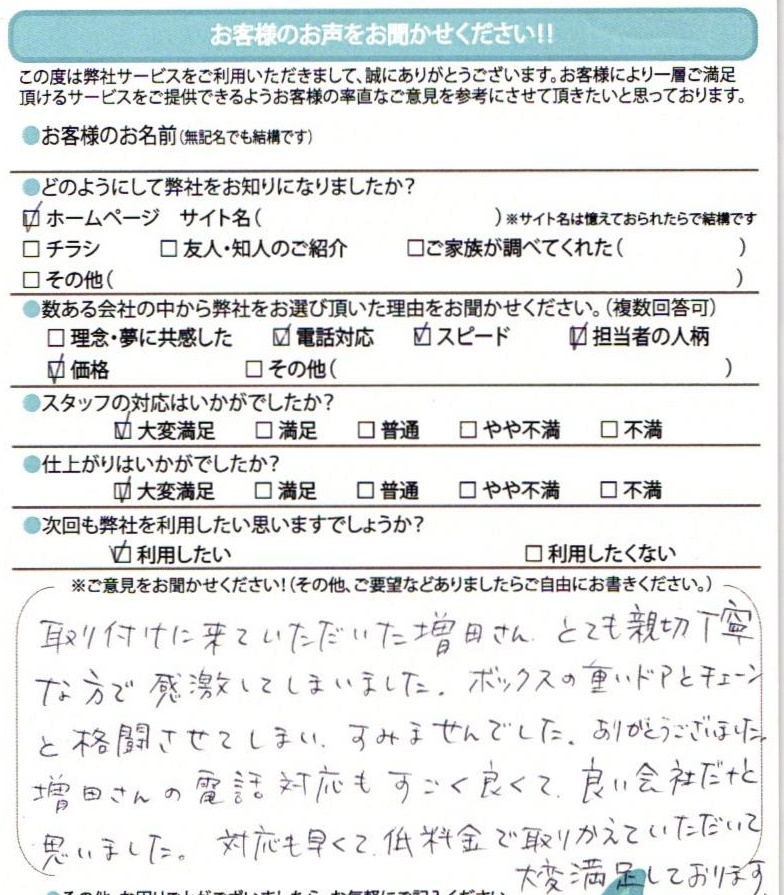 お客様のお声をお聞かせください!!
この度は弊社サービスをご利用いただきまして、誠にありがとうございます。お客様により一層ご満足
頂けるサービスをご提供できるようお客様の率直なご意見を参考にさせて頂きたいと思っております。
●お客様のお名前(無記名でも結構です)
●どのようにして弊社をお知りになりましたか?
☑ホームページ サイト名( )※サイト名は憶えておられたらで結構です
□チラシ □友人・知人のご紹介 □ご家族が調べてくれた( )
□その他( )
●数ある会社の中から弊社をお選び頂いた理由をお聞かせください。(複数回答可)
□理念・夢に共感した ☑電話対応 ☑スピード ☑担当者の人柄
☑価格 □その他( )
●スタッフの対応はいかがでしたか?
☑大変満足 □満足 □普通 □やや不満 □不満
●仕上がりはいかがでしたか?
☑大変満足 □満足 □普通 □やや不満 □不満
●次回も弊社を利用したい思いますでしょうか?
☑利用したい □利用したくない
※ご意見をお聞かせください!(その他、ご要望などありましたらご自由にお書きください。)
取り付けに来ていただいた増田さん、とても親切丁寧
な方で感激してしまいました。ボックスの重いドアとチェーン
と格闘させてしまい、すみませんでした。ありがとうございました
増田さんの電話対応もすごく良くて、良い会社だナと
思いました。対応も早くて、低料金で取りかえていただいて
大変満足しております